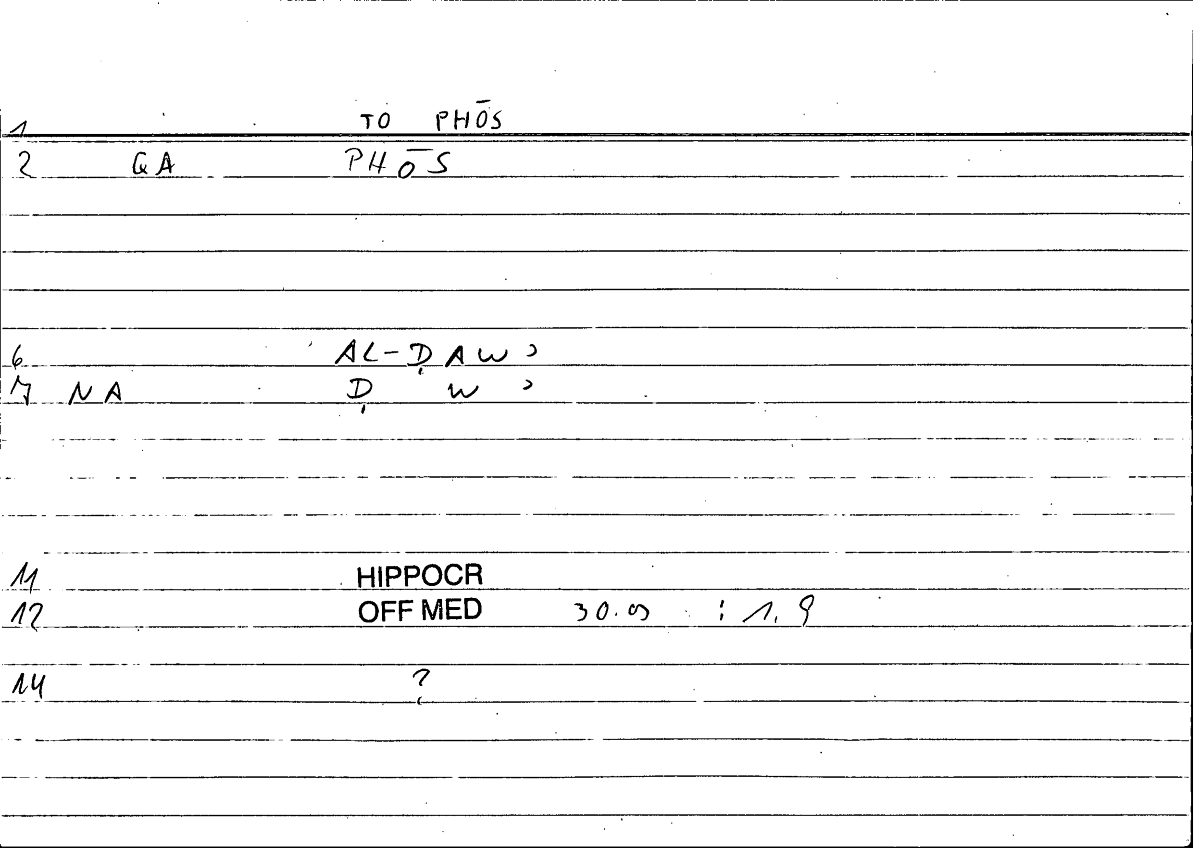 1 TO PHŌS
2 GA PHŌS
6 AL-ḌAWʾ
7 NA Ḍ W ʾ
11 HIPPOCR
12 OFF MED 30.9 : 1.9
14 ?